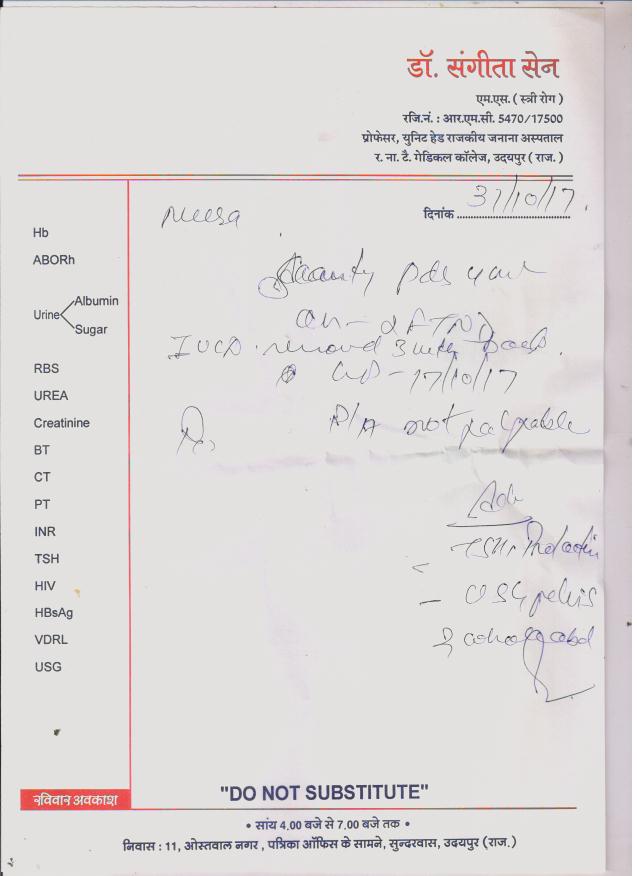 डॉ. संगीता सेन
एम.एस. ( स्त्री रोग )
रजि.नं. : आर.एम.सी. 5470/17500
प्रोफेसर, युनिट हेड राजकीय जनाना अस्पताल
र. ना. टै. मेडिकल कॉलेज, उदयपुर ( राज. )
दिनांक 31/10/17
Hb
ABORh
Urine Albumin
Sugar
RBS
UREA
Creatinine
BT
CT
PT
INR
TSH
HIV
HBsAg
VDRL
USG
Scanty pds
OH - 2FTND
IUCD removed 3 back
LMP - 17/10/17
P/A not palpable
Rx
Adv
TSH, Prolactin
- USG pelvis
रविवार अवकाश
"DO NOT SUBSTITUTE"
• सांय 4.00 बजे से 7.00 बजे तक •
निवास : 11, ओस्तवाल नगर , पत्रिका ऑफिस के सामने, सुन्दरवास, उदयपुर (राज.)